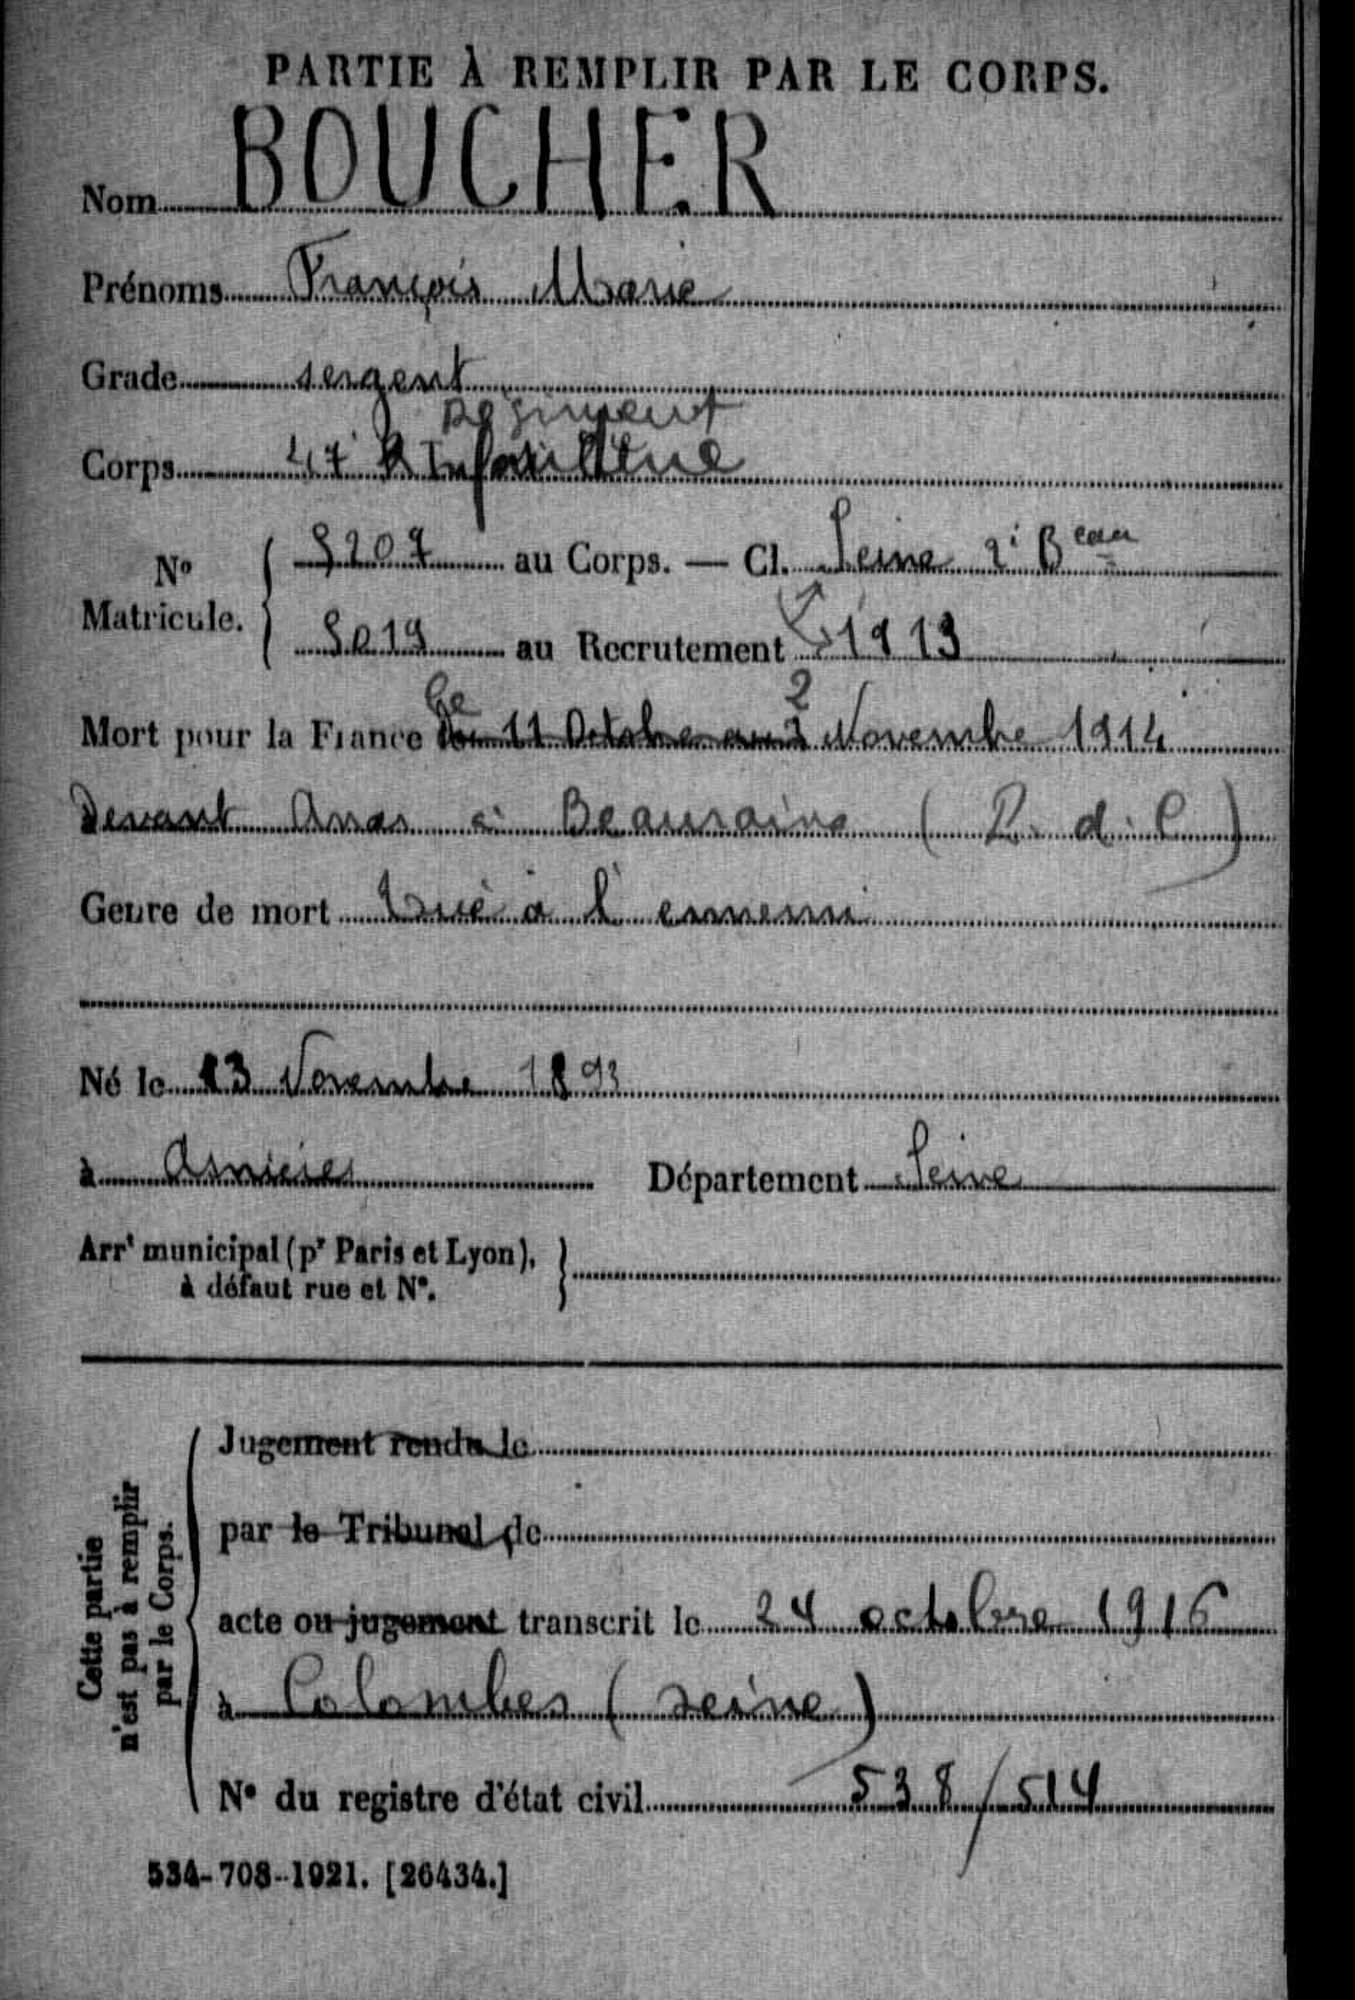 PARTIE À REMPLIR PAR LE CORPS.
Nom BOUCHER
Prénoms François Marie
Grade sergent
Régiment
Corps 47 Infanterie
No Matricule. 5207 au Corps. — Cl. Seine 2e Beau
5019 au Recrutement 1913
le 2
Mort pour la France du 11 Octobre au 2 Novembre 1914
Devant Arras à Beaurains (P. d. C)
Genre de mort Tué à l'ennemi
Né le 13 Novembre 1893
à Asnières Département Seine
Arrt municipal (pr Paris et Lyon),
à défaut rue et N°.
Cette partie
n'est pas à remplir
par le Corps.
Jugement rendu le
par le Tribunal de
acte ou jugement transcrit le 24 octobre 1916
à Colombes (Seine)
N° du registre d'état civil 538/514
534-708-1921. [26434.]